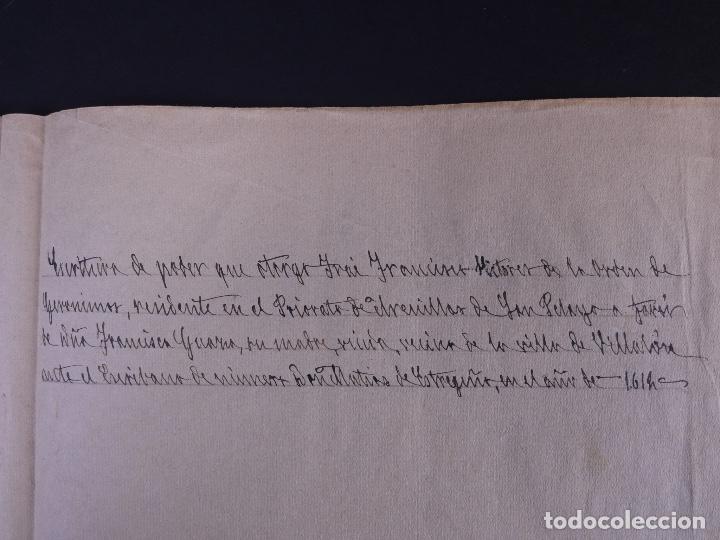 Escritura de poder que otorgo Frai Francisco Victores de la Orden de
Geronimos, residente en el Priorato de Arenillas de San Pelayo a favor
de Dña Francisca Guaza, su madre, viuda, vecina de la villa de Villalón
ante el Escribano de número Don Matias de Estregeño, en el año de 1612
todocoleccion.net